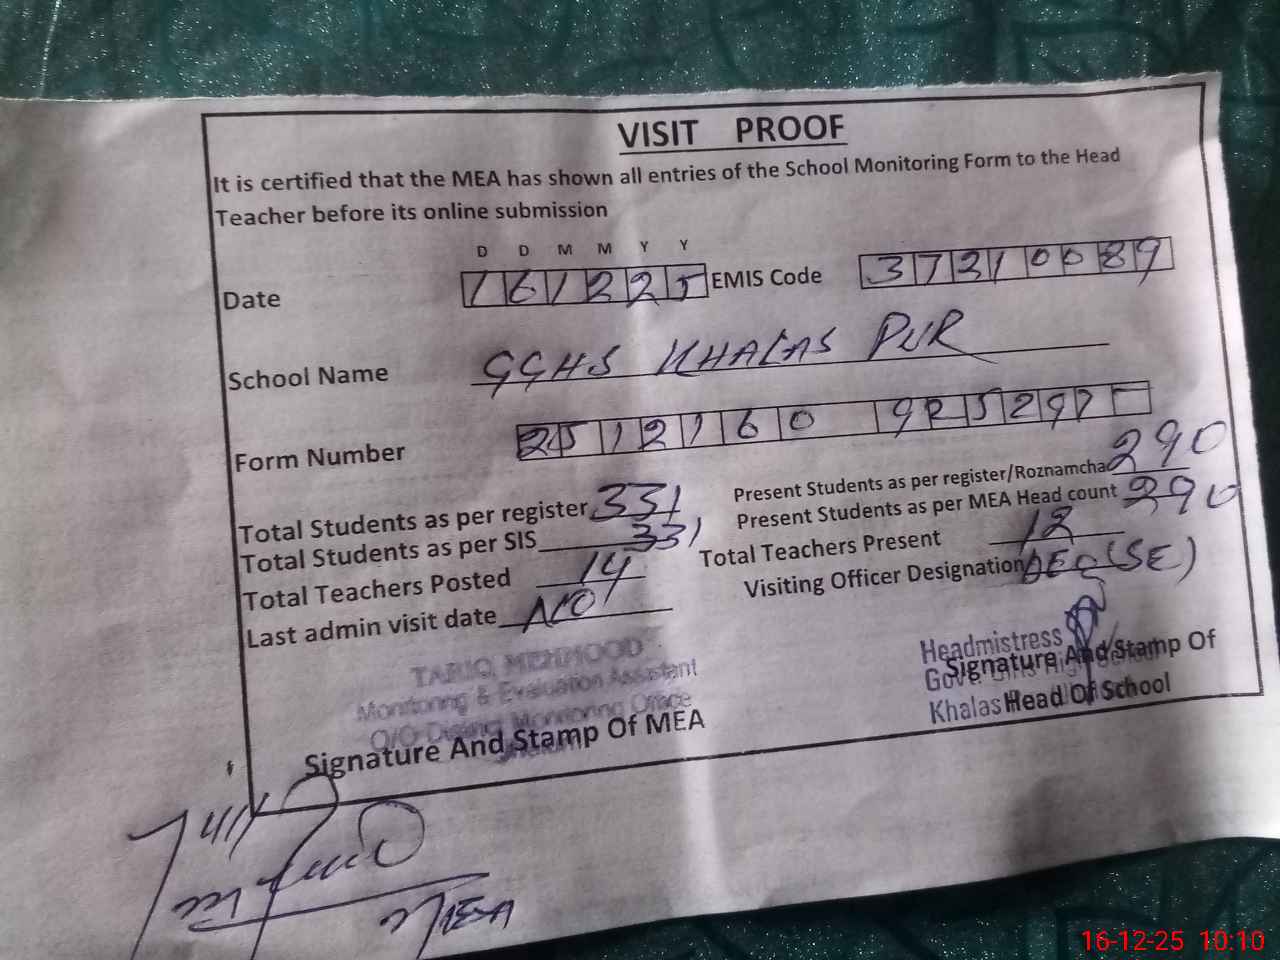 VISIT PROOF
It is certified that the MEA has shown all entries of the School Monitoring Form to the Head
Teacher before its online submission
D D M M Y Y
Date 161225 EMIS Code 37310089
School Name GGHS KHALAS PUR
Form Number 2512160 925297
Total Students as per register 331 Present Students as per register/Roznamcha 290
Total Students as per SIS 331 Present Students as per MEA Head count 290
Total Teachers Posted 14 Total Teachers Present 12
Last admin visit date Visiting Officer Designation DEO(SE)
TARIQ MEHMOOD
Monitoring & Evaluation Assistant
O/O District Monitoring Office
Signature And Stamp Of MEA
Headmistress
Govt. Girls High School
Khalas
Signature And Stamp Of
Head Of School
MEA
16-12-25 10:10